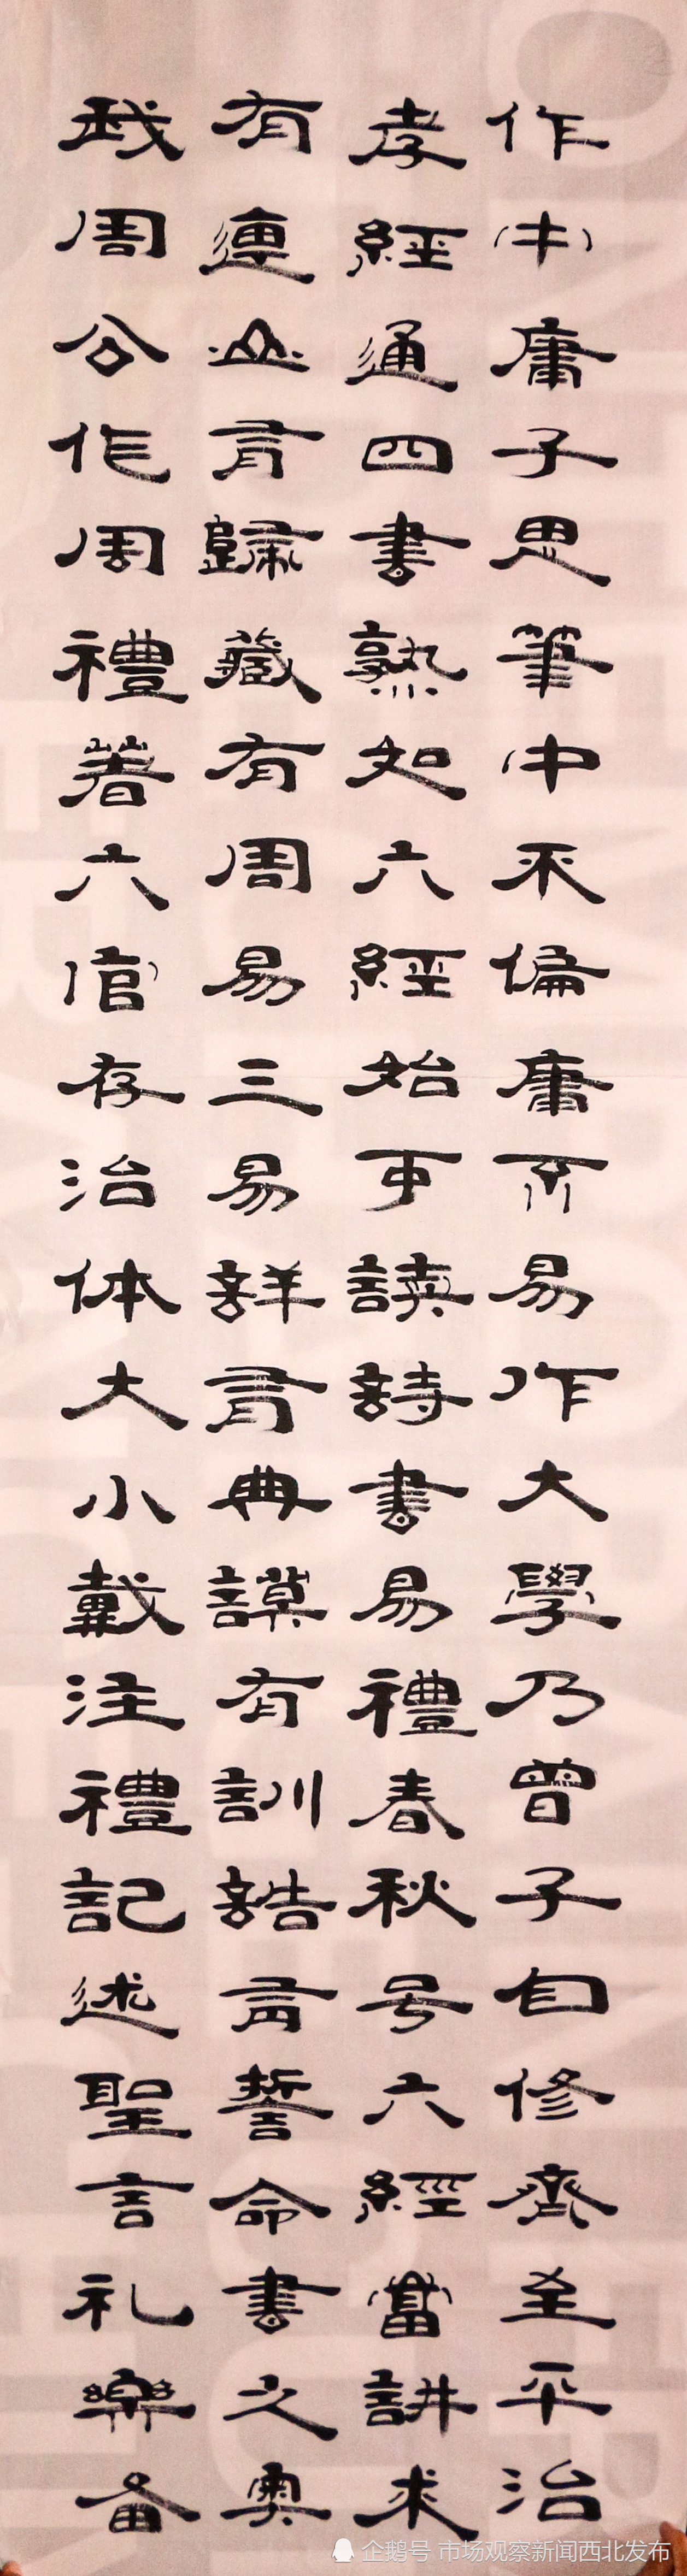 作中庸子思筆中不偏庸不易作大學乃曾子自修齊至平治
孝經通四書熟如六經始可讀詩書易禮春秋号六經當講求
有連山有歸藏有周易三易詳有典謨有訓誥有誓命書之奧
我周公作周禮著六官存治体大小戴注禮記述聖言礼樂备
企鹅号 市场观察新闻西北发布